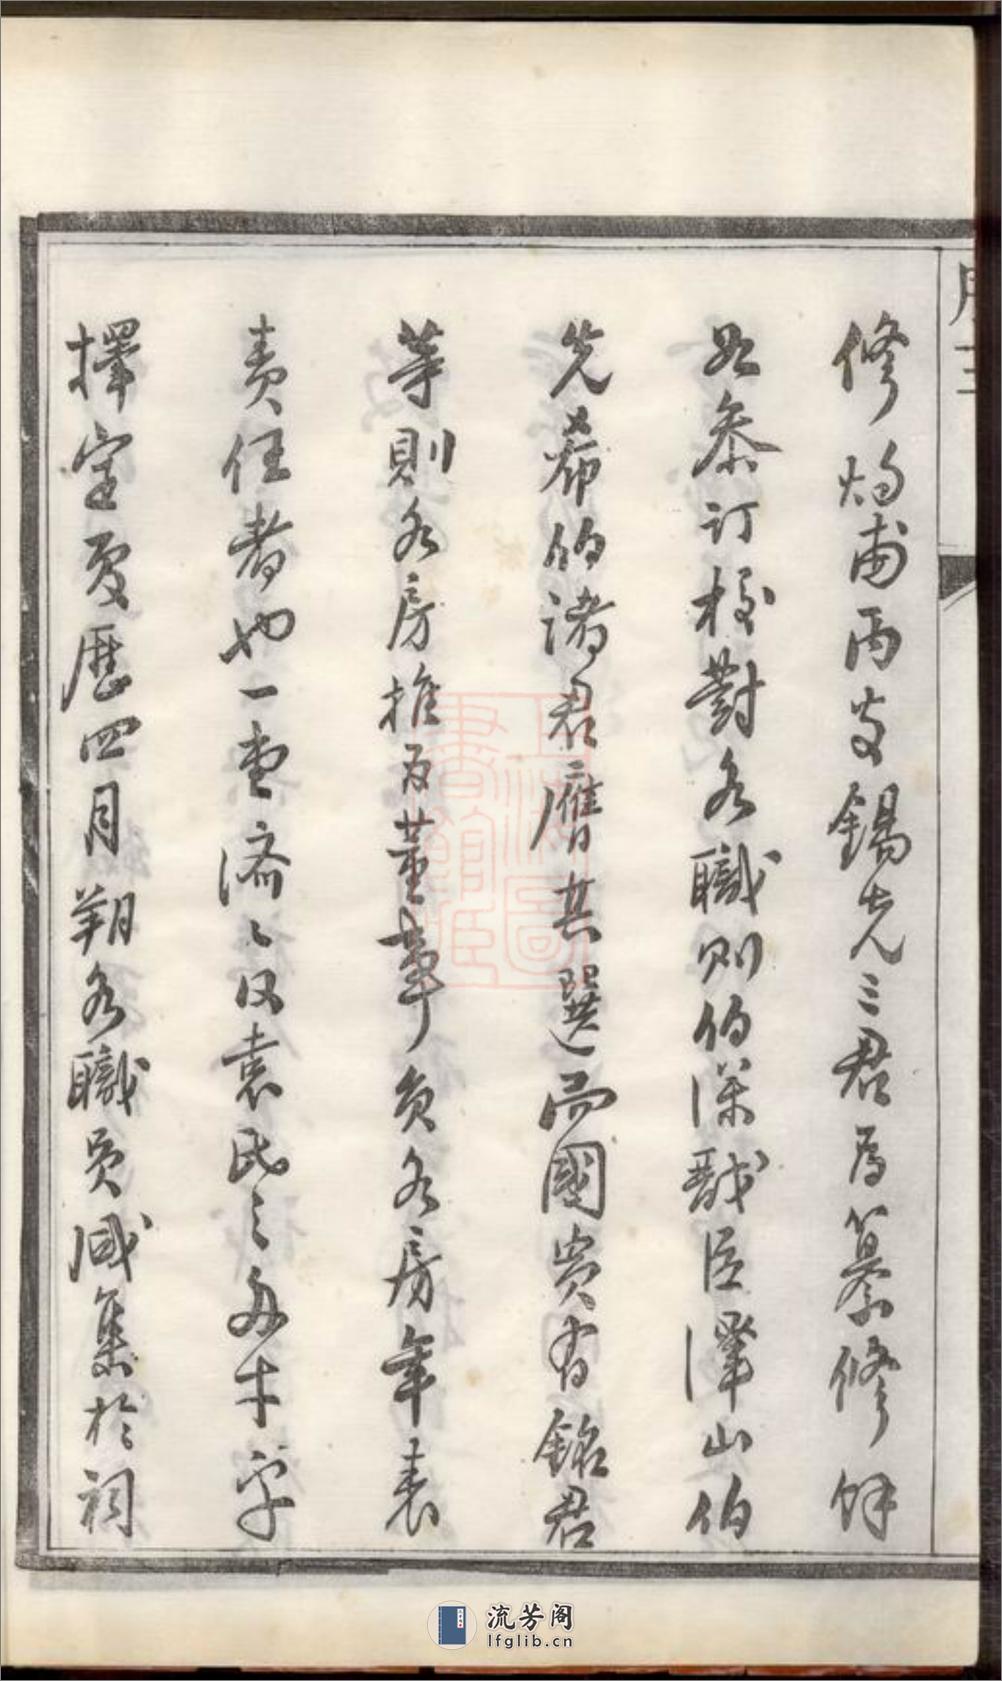 修灼甫丙支錫光三君為纂修餘
如參訂校對各職則伯深猷臣澤山伯
先希伯諸君膺其選而國賓有銘君
等則各房推為董事負各房年表
責任者也一堂濟濟以袁氏之多才
擇定夏歷四月朔各職員咸集於祠
上海圖書館藏
流芳阁
lfglib.cn